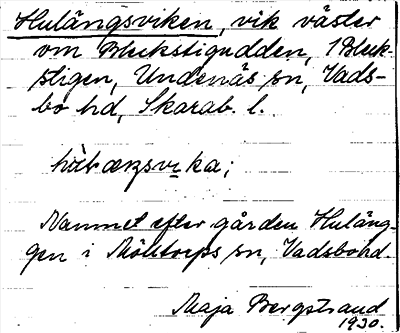 Hulängsviken, vik väster
om Bleckstigudden, i Bleck-
stigen, Undenäs sn, Vads-
bo hd, Skarab. l.
Namnet efter gården Huläng-
gen i Mölltorps sn, Vadsbo hd.
Maja Bergstrand
1930.